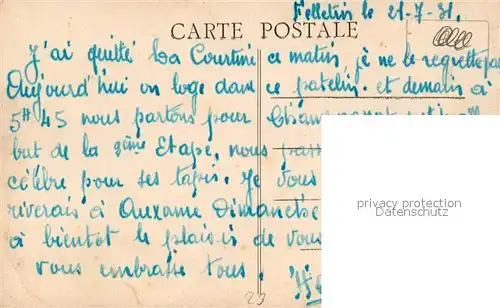 Felletin le 21-7-31.
CARTE POSTALE
J'ai quitté La Courtine ce matin, je ne le regrette pas
Aujourd'hui on loge dans ce patelin. et demain à
5H 45 nous partons pour
but de la 2ème Etape, nous
célèbre pour ses tapis. Je vous
riverais à Auxonne Dimanche
à bientôt le plaisir de vous
vous embrasse tous.
privacy protection
Datenschutz
23